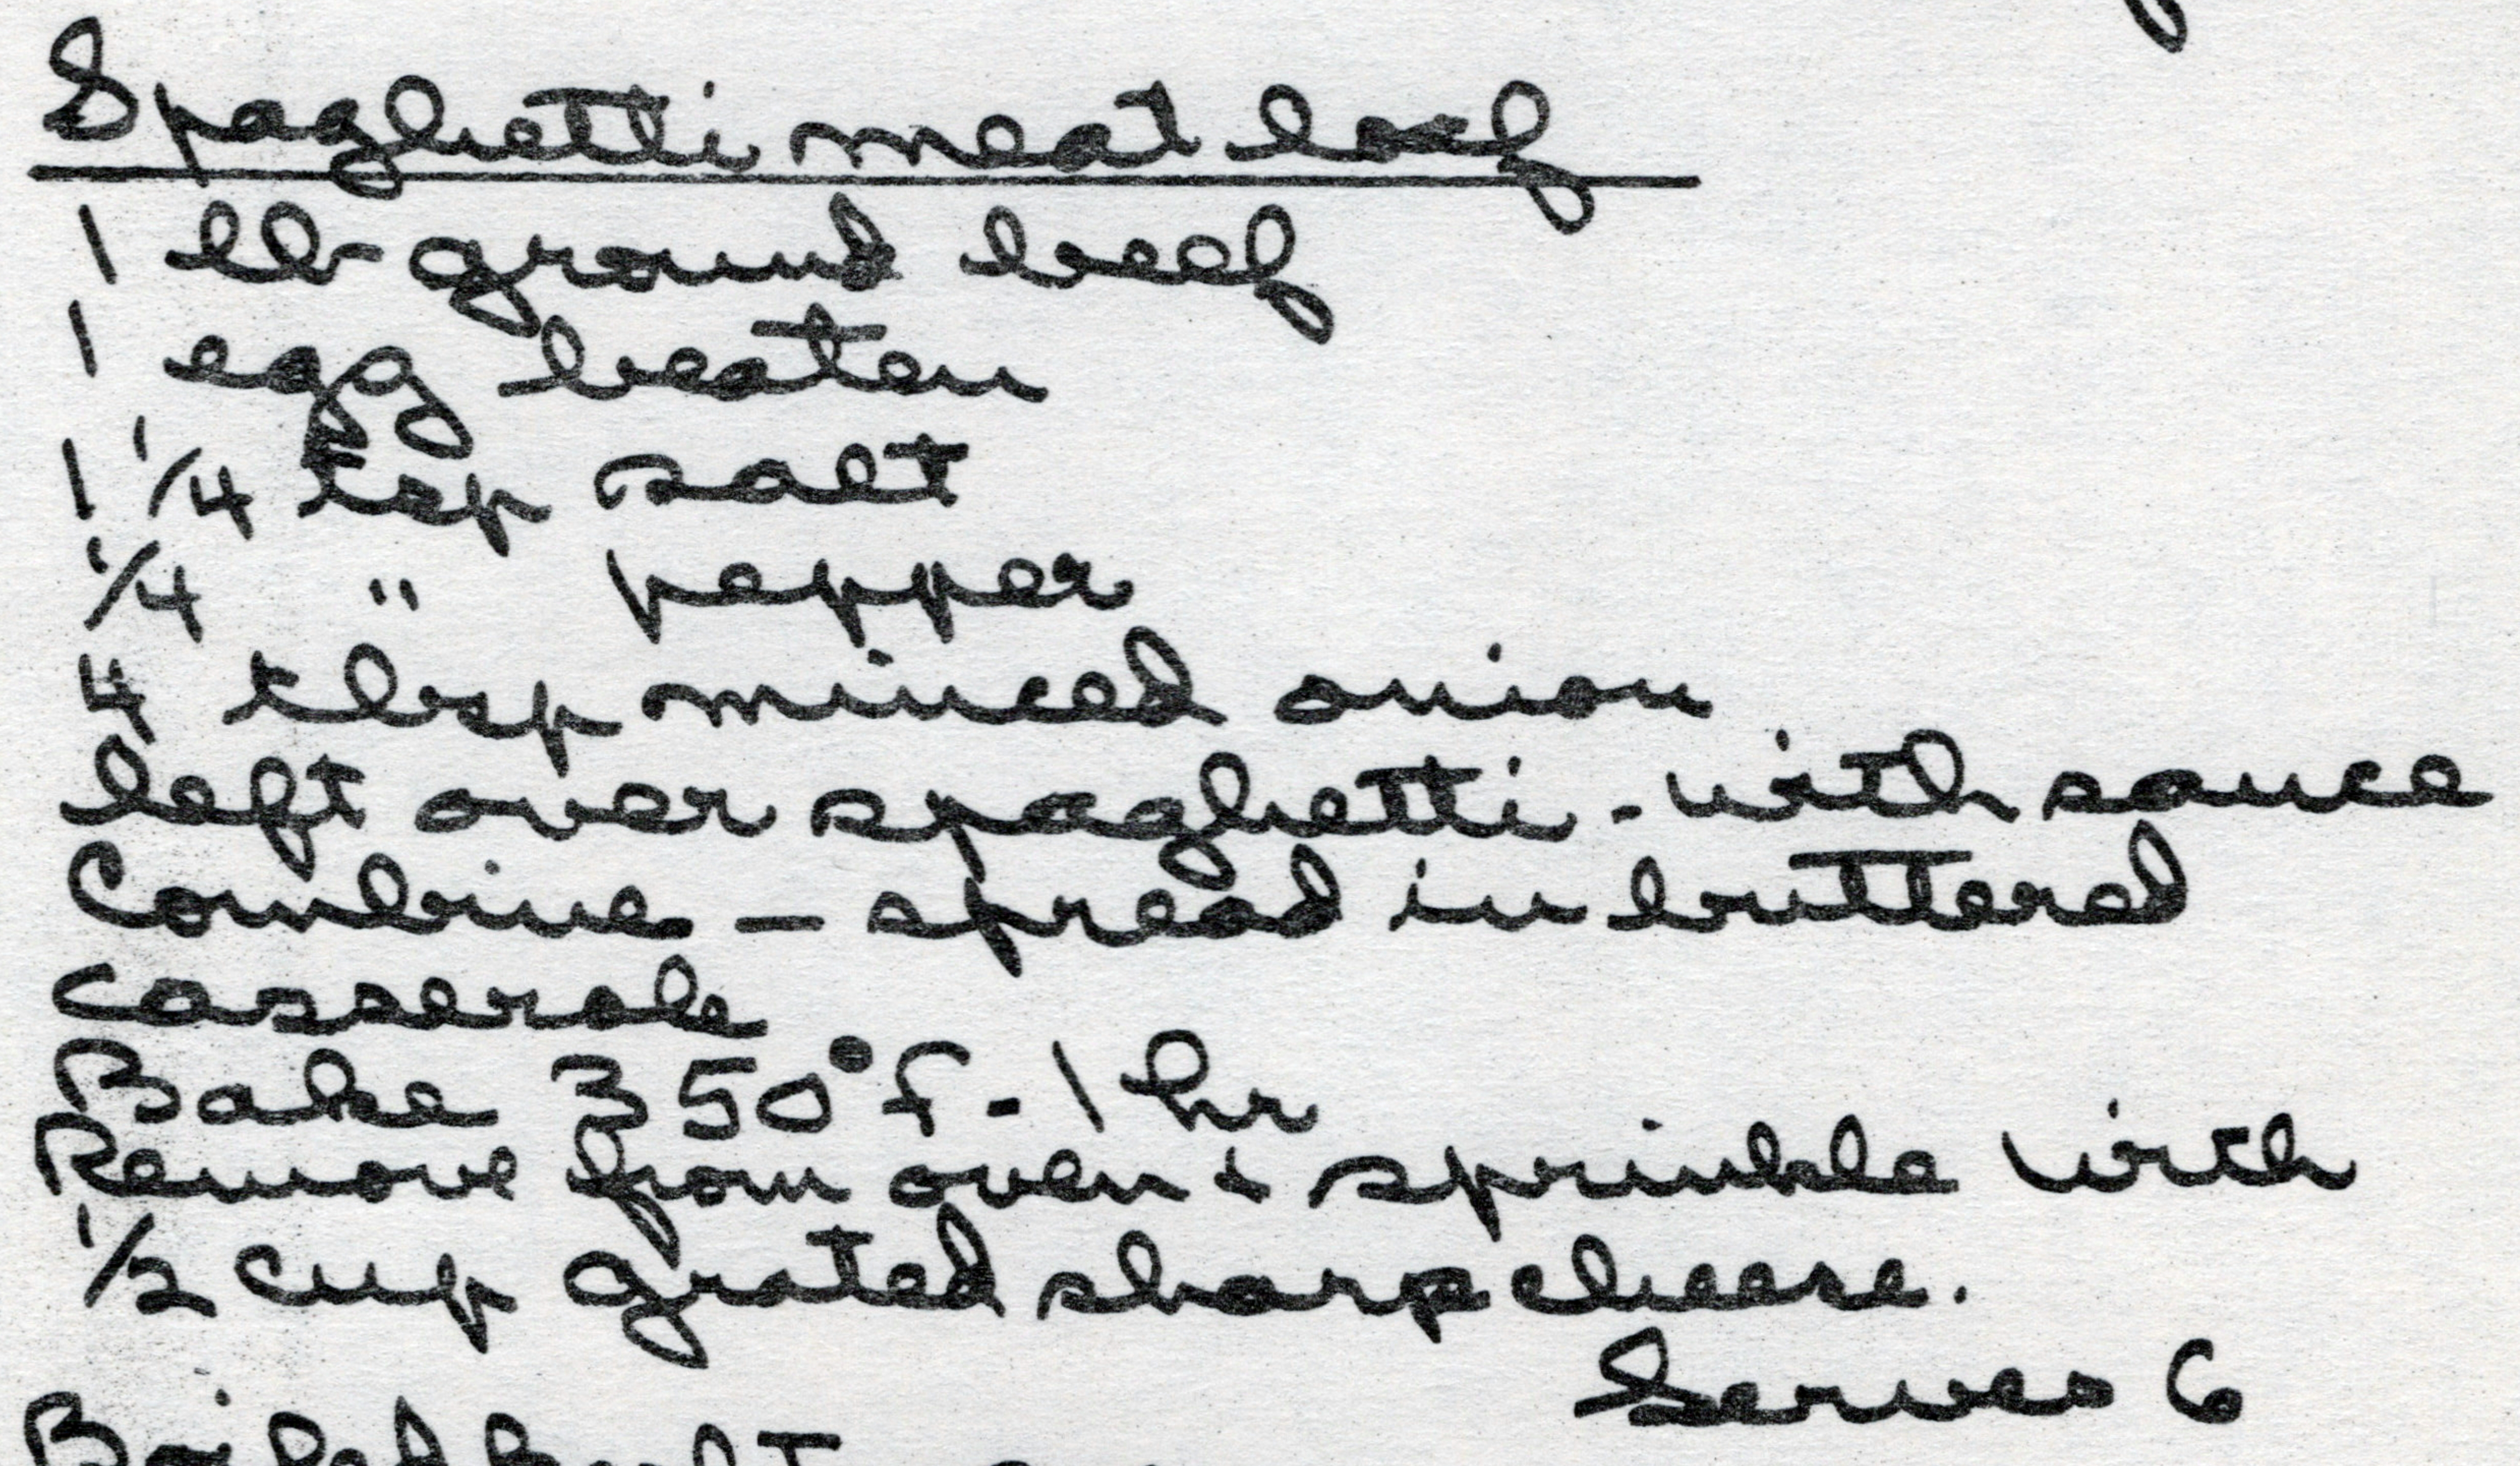 Spaghetti meat loaf
1 lb ground beef
1 egg beaten
1 1/4 tsp salt
1/4 " pepper
4 tbsp minced onion
left over spaghetti - with sauce
Combine — spread in buttered
casserole
Bake 350°F - 1 hr
Remove from oven + sprinkle with
1/2 cup grated sharp cheese.
Serves 6